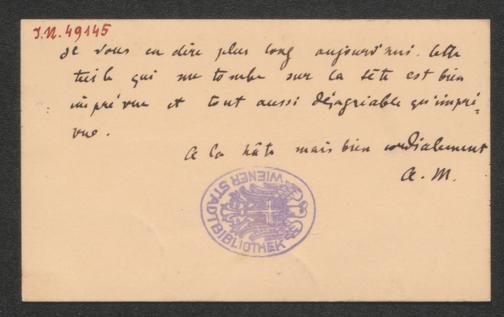 I.N. 49145
de vous en dire plus long aujourd'hui. Cette
tuile qui me tombe sur la tête est bien
imprévue et tout aussi désagréable qu'impré-
vue.
A la hâte mais bien cordialement
A. M.
WIENER STADTBIBLIOTHEK